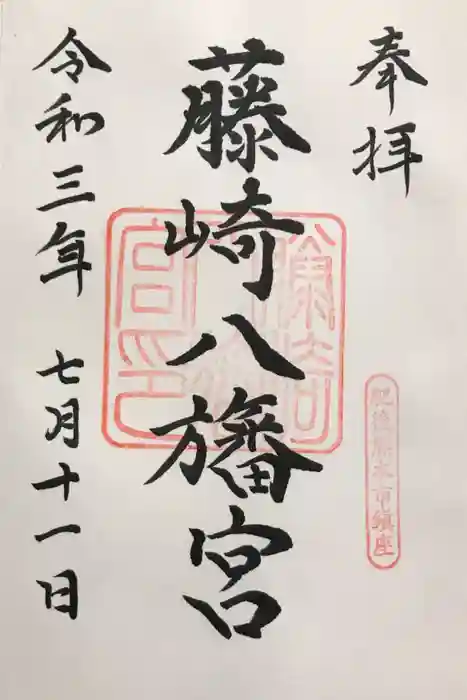 奉拝
肥後熊本市鎮座
藤崎八旛宮
令和三年 七月十一日